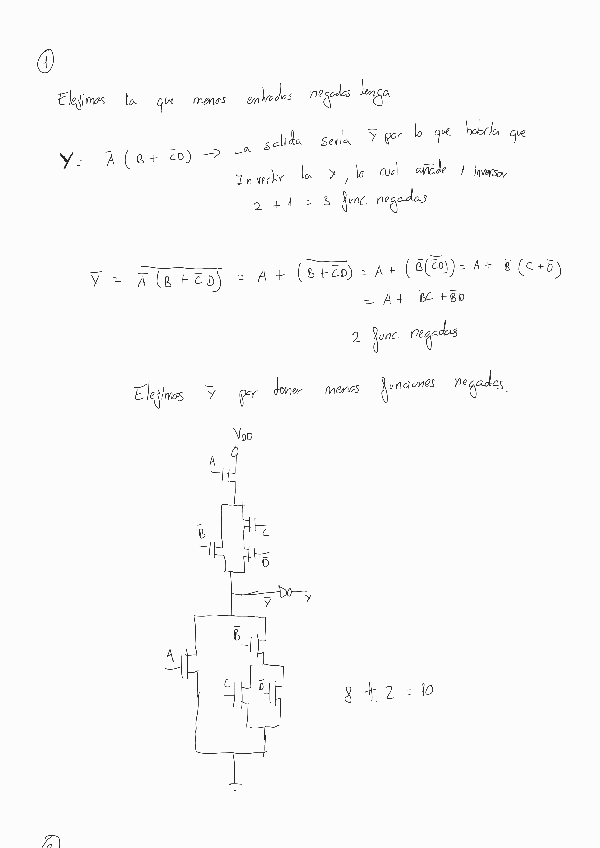 1
Elejimos la que menos entradas negadas tenga
Y = Ā ( B + C̄D) → La salida sería Ȳ por lo que habría que
Invertir la Y, lo cual añade 1 inversor
2 + 1 = 3 func. negadas
Ȳ = \overline{Ā (B + C̄D)} = A + (\overline{B + C̄D}) = A + (B̄(\overline{C̄D})) = A + B̄ (C + D̄)
= A + B̄C + B̄D̄
2 func. negadas
Elejimos Ȳ por tener menos funciones negadas.
VDD
A
B̄ C
D̄
Ȳ Y
B̄
A
C D̄
8 + 2 = 10